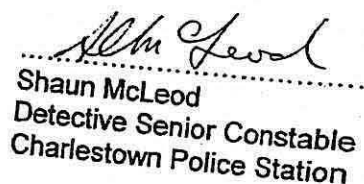 Shaun McLeod
Detective Senior Constable
Charlestown Police Station